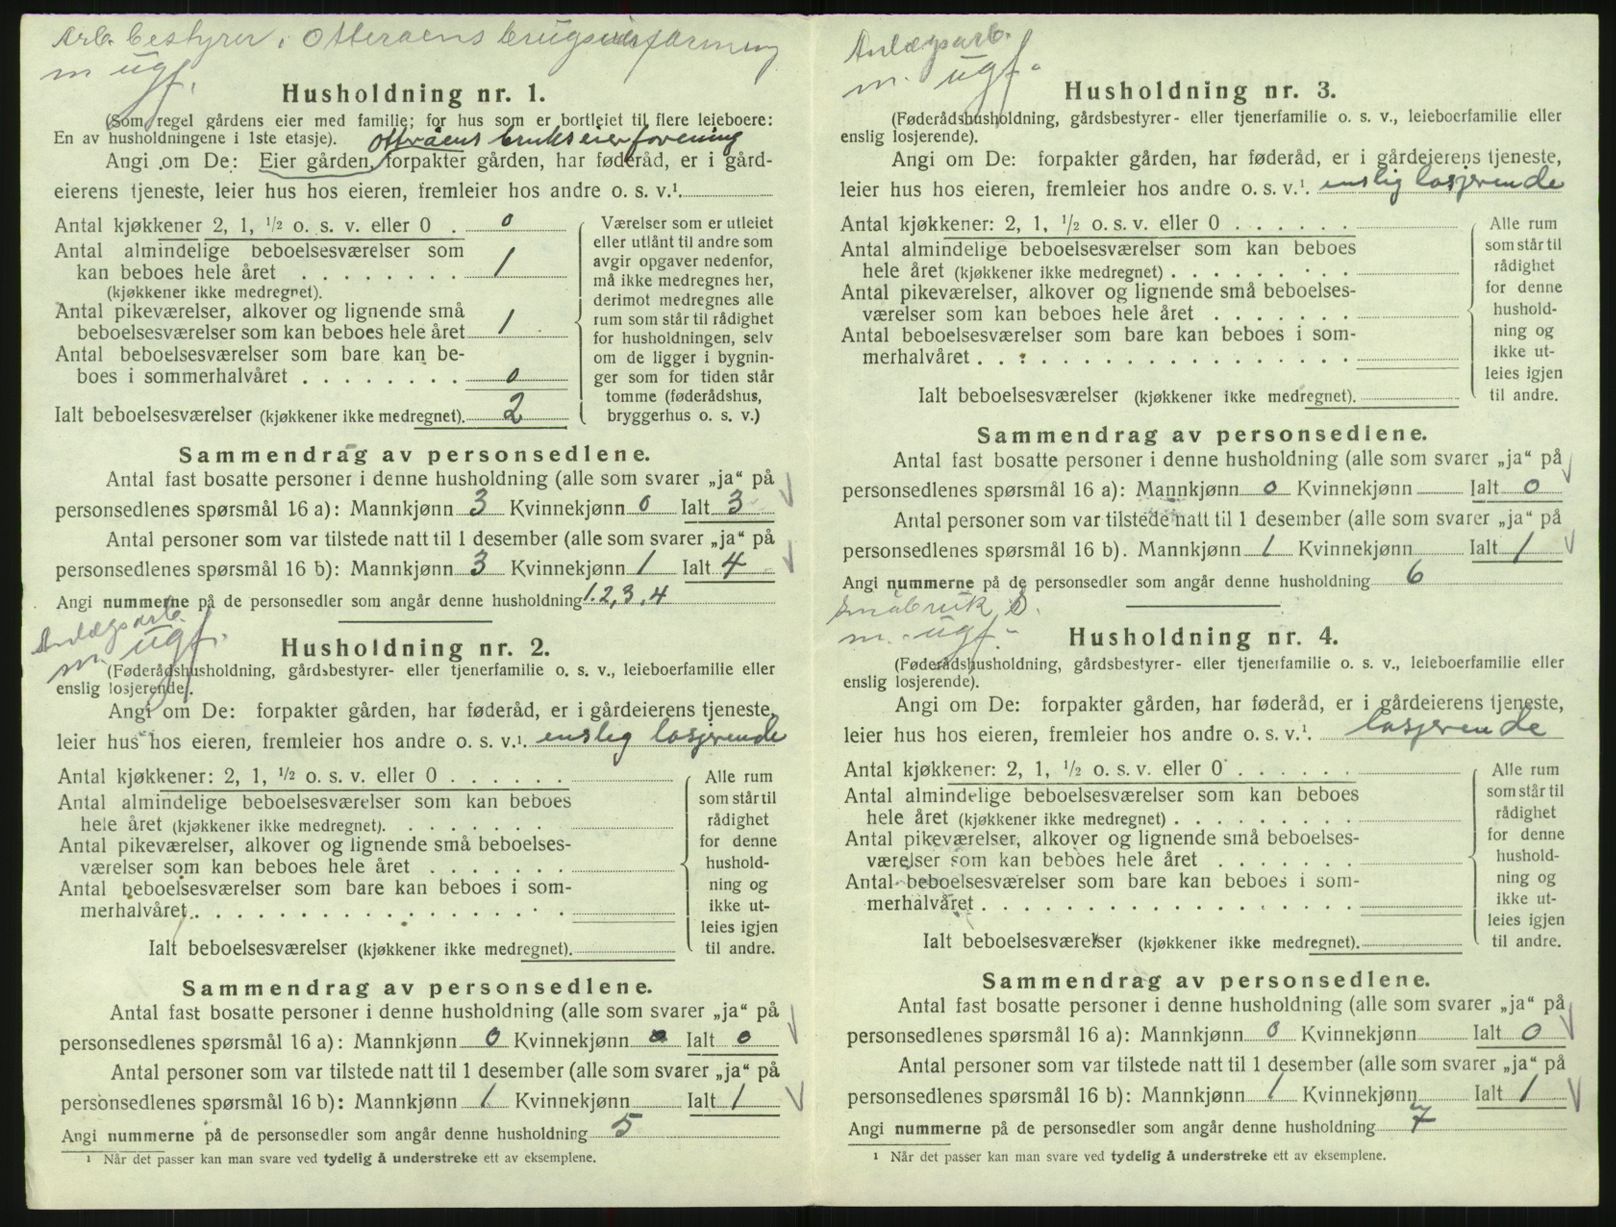 Arb. bestyrer i Otteraens brugseierforening
m ugf.
Husholdning nr. 1.
(Som regel gårdens eier med familie; for hus som er bortleiet til flere leieboere:
En av husholdningene i 1ste etasje). Ottraens brukseierforening
Angi om De: Eier gården, forpakter gården, har føderåd, er i gård-
eierens tjeneste, leier hus hos eieren, fremleier hos andre o. s. v.¹
Antal kjøkkener 2, 1, ½ o. s. v. eller 0 . 0
Antal almindelige beboelsesværelser som
kan beboes hele året . . . . . . . . 1
(kjøkkener ikke medregnet).
Antal pikeværelser, alkover og lignende små
beboelsesværelser som kan beboes hele året 1
Antal beboelsesværelser som bare kan be-
boes i sommerhalvåret . . . . . . . . 0
Ialt beboelsesværelser (kjøkkener ikke medregnet). 2
Værelser som er utleiet
eller utlånt til andre som
avgir opgaver nedenfor,
må ikke medregnes her,
derimot medregnes alle
rum som står til rådighet
for husholdningen, selv
om de ligger i bygnin-
ger som for tiden står
tomme (føderådshus,
bryggerhus o. s. v.)
Sammendrag av personsedlene.
Antal fast bosatte personer i denne husholdning (alle som svarer „ja“ på
personsedlenes spørsmål 16 a): Mannkjønn 3 Kvinnekjønn 0 Ialt 3
Antal personer som var tilstede natt til 1 desember (alle som svarer „ja“ på
personsedlenes spørsmål 16 b): Mannkjønn 3 Kvinnekjønn 1 Ialt 4
Angi nummerne på de personsedler som angår denne husholdning 1.2,3,4
Anlægsarb.
m. ugf.
Husholdning nr. 2.
(Føderådshusholdning, gårdsbestyrer- eller tjenerfamilie o. s. v., leieboerfamilie eller
enslig losjerende).
Angi om De: forpakter gården, har føderåd, er i gårdeierens tjeneste,
leier hus hos eieren, fremleier hos andre o. s. v.¹. enslig losjerende
Antal kjøkkener: 2, 1, ½ o. s. v. eller 0 . . . . . .
Antal almindelige beboelsesværelser som kan beboes
hele året (kjøkkener ikke medregnet). . . . . . . .
Antal pikeværelser, alkover og lignende små beboelses-
værelser som kan beboes hele året . . . . . . .
Antal beboelsesværelser som bare kan beboes i som-
merhalvåret . . . . . . . . . . . . . . . . .
Ialt beboelsesværelser (kjøkkener ikke medregnet).
Alle rum
som står til
rådighet
for denne
hushold-
ning og
ikke ut-
leies igjen
til andre.
Sammendrag av personsedlene.
Antal fast bosatte personer i denne husholdning (alle som svarer „ja“ på
personsedlenes spørsmål 16 a): Mannkjønn 0 Kvinnekjønn 0 Ialt 0
Antal personer som var tilstede natt til 1 desember (alle som svarer „ja“ på
personsedlenes spørsmål 16 b): Mannkjønn 1 Kvinnekjønn Ialt 1
Angi nummerne på de personsedler som angår denne husholdning 5
¹ Når det passer kan man svare ved tydelig å understreke ett av eksemplene.
Anlægsarb.
m. ugf.
Husholdning nr. 3.
(Føderådshusholdning, gårdsbestyrer- eller tjenerfamilie o. s. v., leieboerfamilie eller
enslig losjerende).
Angi om De: forpakter gården, har føderåd, er i gårdeierens tjeneste,
leier hus hos eieren, fremleier hos andre o. s. v.¹. enslig losjerende
Antal kjøkkener: 2, 1, ½ o. s. v. eller 0 . . . . . .
Antal almindelige beboelsesværelser som kan beboes
hele året (kjøkkener ikke medregnet) . . . . . . . . .
Antal pikeværelser, alkover og lignende små beboelses-
værelser som kan beboes hele året . . . . . . .
Antal beboelsesværelser som bare kan beboes i som-
merhalvåret . . . . . . . . . . . . . . . . .
Ialt beboelsesværelser (kjøkkener ikke medregnet).
Alle rum
som står til
rådighet
for denne
hushold-
ning og
ikke ut-
leies igjen
til andre.
Sammendrag av personsedlene.
Antal fast bosatte personer i denne husholdning (alle som svarer „ja“ på
personsedlenes spørsmål 16 a): Mannkjønn 0 Kvinnekjønn Ialt 0
Antal personer som var tilstede natt til 1 desember (alle som svarer „ja“ på
personsedlenes spørsmål 16 b). Mannkjønn 1 Kvinnekjønn Ialt 1
Angi nummerne på de personsedler som angår denne husholdning 6
Småbruk S.
m. ugf.
Husholdning nr. 4.
(Føderådshusholdning, gårdsbestyrer- eller tjenerfamilie o. s. v., leieboerfamilie eller
enslig losjerende).
Angi om De: forpakter gården, har føderåd, er i gårdeierens tjeneste,
leier hus hos eieren, fremleier hos andre o. s. v.¹. losjerende
Antal kjøkkener: 2, 1, ½ o. s. v. eller 0 . . . . . .
Antal almindelige beboelsesværelser som kan beboes
hele året (kjøkkener ikke medregnet) . . . . . . . . .
Antal pikeværelser, alkover og lignende små beboelses-
værelser som kan beboes hele året . . . . . . .
Antal beboelsesværelser som bare kan beboes i som-
merhalvåret . . . . . . . . . . . . . . . . .
Ialt beboelsesværelser (kjøkkener ikke medregnet).
Alle rum
som står til
rådighet
for denne
hushold-
ning og
ikke ut-
leies igjen
til andre.
Sammendrag av personsedlene.
Antal fast bosatte personer i denne husholdning (alle som svarer „ja“ på
personsedlenes spørsmål 16 a): Mannkjønn 0 Kvinnekjønn Ialt 0
Antal personer som var tilstede natt til 1 desember (alle som svarer „ja“ på
personsedlenes spørsmål 16 b): Mannkjønn 1 Kvinnekjønn Ialt 1
Angi nummerne på de personsedler som angår denne husholdning 7
¹ Når det passer kan man svare ved tydelig å understreke ett av eksemplene.